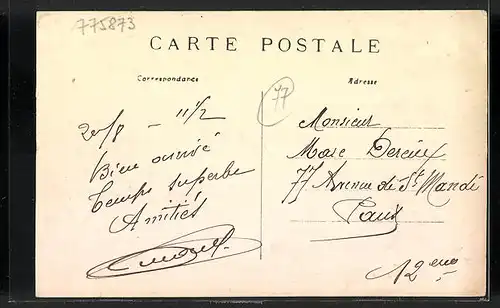 775873
CARTE POSTALE
Correspondance
Adresse
77
20/8 - 11 1/2
Bien arrivé
Temps superbe
Amitiés
Monsieur
Marc
77 Avenue de St Mandé
Paris
12 eme